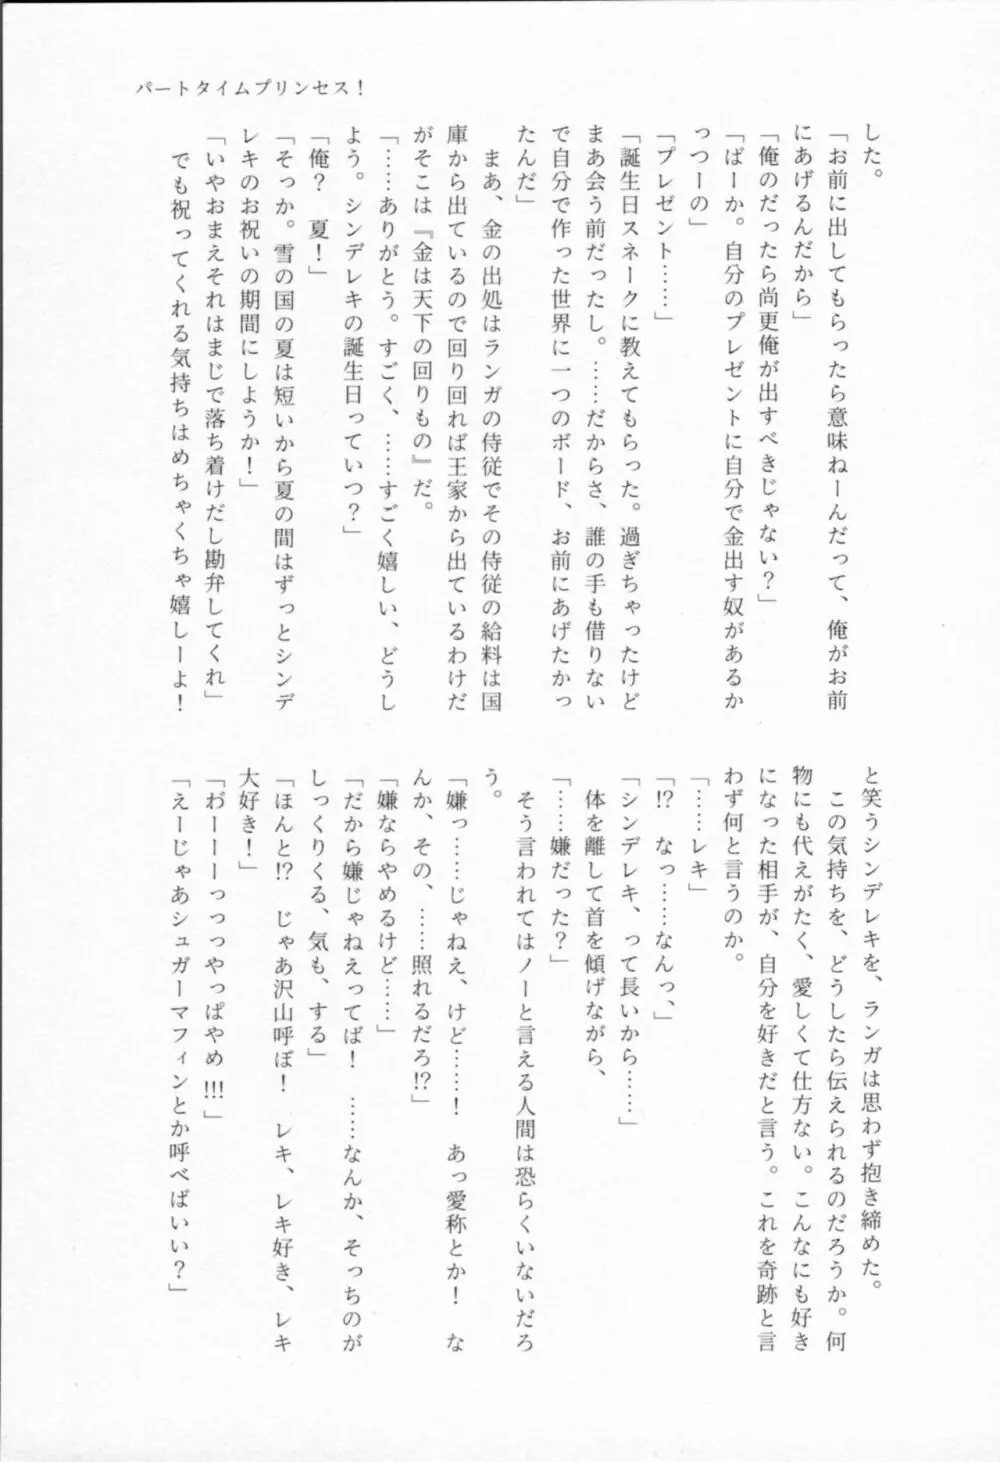 パートタイムプリンセス！
した。
「お前に出してもらったら意味ねーんだって、俺がお前
にあげるんだから」
「俺のだったら尚更俺が出すべきじゃない？」
「ばーか。自分のプレゼントに自分で金出す奴があるか
っつーの」
「プレゼント……」
「誕生日スネークに教えてもらった。過ぎちゃったけど
まあ会う前だったし。……だからさ、誰の手も借りない
で自分で作った世界に一つのボード、お前にあげたかっ
たんだ」
まあ、金の出処はランガの侍従でその侍従の給料は国
庫から出ているので回り回れば王家から出ているわけだ
がそこは『金は天下の回りもの』だ。
「……ありがとう。すごく、……すごく嬉しい、どうし
よう。シンデレキの誕生日っていつ？」
「俺？　夏！」
「そっか。雪の国の夏は短いから夏の間はずっとシンデ
レキのお祝いの期間にしようか！」
「いやおまえそれはまじで落ち着けだし勘弁してくれ」
でも祝ってくれる気持ちはめちゃくちゃ嬉しーよ！
と笑うシンデレキを、ランガは思わず抱き締めた。
この気持ちを、どうしたら伝えられるのだろうか。何
物にも代えがたく、愛しくて仕方ない。こんなにも好き
になった相手が、自分を好きだと言う。これを奇跡と言
わず何と言うのか。
「……レキ」
「!?　なっ……なんっ、」
「シンデレキ、って長いから……」
体を離して首を傾げながら、
「……嫌だった？」
そう言われてはノーと言える人間は恐らくいないだろ
う。
「嫌っ……じゃねえ、けど……！　あっ愛称とか！　な
んか、その、……照れるだろ!?」
「嫌ならやめるけど……」
「だから嫌じゃねえってば！　……なんか、そっちのが
しっくりくる、気も、する」
「ほんと!?　じゃあ沢山呼ぼ！　レキ、レキ好き、レキ
大好き！」
「お゙ーーーっっっやっぱやめ!!!」
「えーじゃあシュガーマフィンとか呼べばいい？」